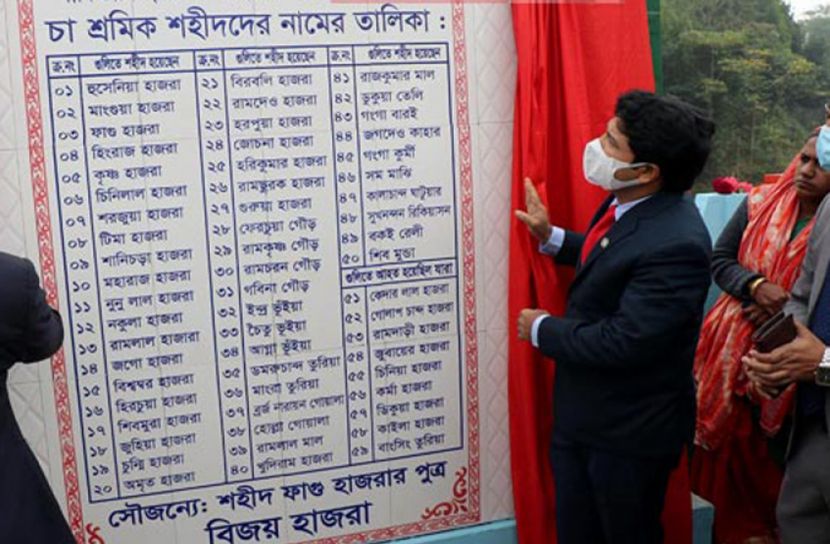 চা শ্রমিক শহীদদের নামের তালিকা :
ক্র.নং গুলিতে শহীদ হয়েছেন
০১ হুসেনিয়া হাজরা
০২ মাংগুয়া হাজরা
০৩ ফাগু হাজরা
০৪ হিংরাজ হাজরা
০৫ কৃষ্ণ হাজরা
০৬ চিনিলাল হাজরা
০৭ শরজুয়া হাজরা
০৮ টিমা হাজরা
০৯ শানিচড়া হাজরা
১০ মহারাজ হাজরা
১১ নুনু লাল হাজরা
১২ নকুলা হাজরা
১৩ রামলাল হাজরা
১৪ জগো হাজরা
১৫ বিশ্বম্বর হাজরা
১৬ হিরচুয়া হাজরা
১৭ শিবমুরা হাজরা
১৮ জুহিয়া হাজরা
১৯ চুন্মি হাজরা
২০ অমৃত হাজরা
ক্র.নং গুলিতে শহীদ হয়েছেন
২১ বিরবলি হাজরা
২২ রামদেও হাজরা
২৩ হরপুয়া হাজরা
২৪ জোচনা হাজরা
২৫ হরিকুমার হাজরা
২৬ রামছুরক হাজরা
২৭ গুরুয়া হাজরা
২৮ ফেরচুয়া গৌড়
২৯ রামকৃষ্ণ গৌড়
৩০ রামচরন গৌড়
৩১ গবিনা গৌড়
৩২ ইন্দ্র ভূঁইয়া
৩৩ চৈতু ভূঁইয়া
৩৪ আগ্না ভূঁইয়া
৩৫ ডমরুচান্দ তুরিয়া
৩৬ মাংরা তুরিয়া
৩৭ ব্রর্জ নারায়ন গোয়ালা
৩৮ হোল্লা গোয়ালা
৩৯ রামলাল মাল
৪০ খুদিরাম হাজরা
ক্র.নং গুলিতে শহীদ হয়েছেন
৪১ রাজকুমার মাল
৪২ ডুকুয়া তেলি
৪৩ গংগা বারই
৪৪ জগদেও কাহার
৪৫ গংগা কুর্মী
৪৬ সম মাঝি
৪৭ কালাচান্দ ঘাটুয়ার
৪৮ সুখনন্দন রিকিয়াসন
৪৯ বকই রেলী
৫০ শিব মুন্ডা
গুলিতে আহত হয়েছিল যারা
৫১ কেদার লাল হাজরা
৫২ গোলাপ চান্দ হাজরা
৫৩ রামদাড়ী হাজরা
৫৪ জুবায়ের হাজরা
৫৫ চিনিয়া হাজরা
৫৬ কর্মা হাজরা
৫৭ ডিকুয়া হাজরা
৫৮ কাইলা হাজরা
৫৯ বাংসিং তুরিয়া
সৌজন্যে: শহীদ ফাগু হাজরার পুত্র
বিজয় হাজরা